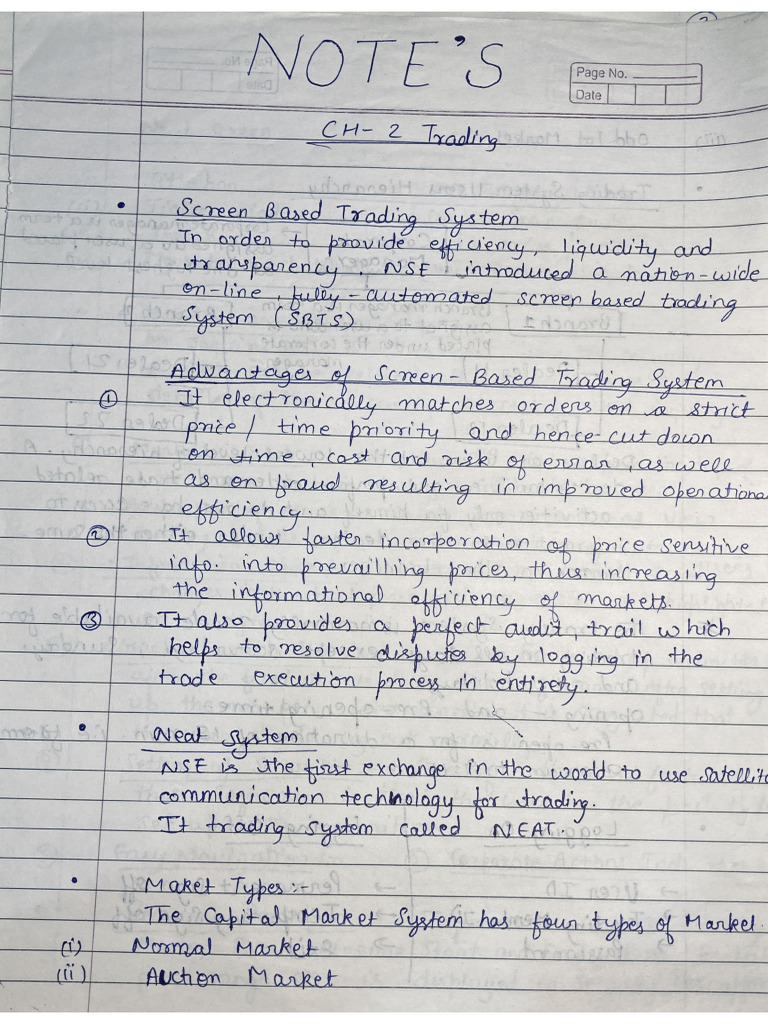 NOTE'S
Page No.
Date
CH-2 Trading
• Screen Based Trading System
In order to provide efficiency, liquidity and
transparency, NSE introduced a nation-wide
on-line, fully-automated screen based trading
System (SBTS)
Advantages of Screen-Based Trading System
① It electronically matches orders on a strict
price/ time priority and hence-cut down
on time, cost and risk of error, as well
as on fraud resulting in improved operational
efficiency.
② It allows faster incorporation of price sensitive
info. into prevailling prices, thus increasing
the informational efficiency of markets.
③ It also provides a perfect audit trail which
helps to resolve disputes by logging in the
trade execution process in entirety.
• Neat System
NSE is the first exchange in the world to use satellite
communication technology for trading.
It trading system called NEAT.
• Maket Types :-
The Capital Market System has four types of Market.
(i) Normal Market
(ii) Auction Market